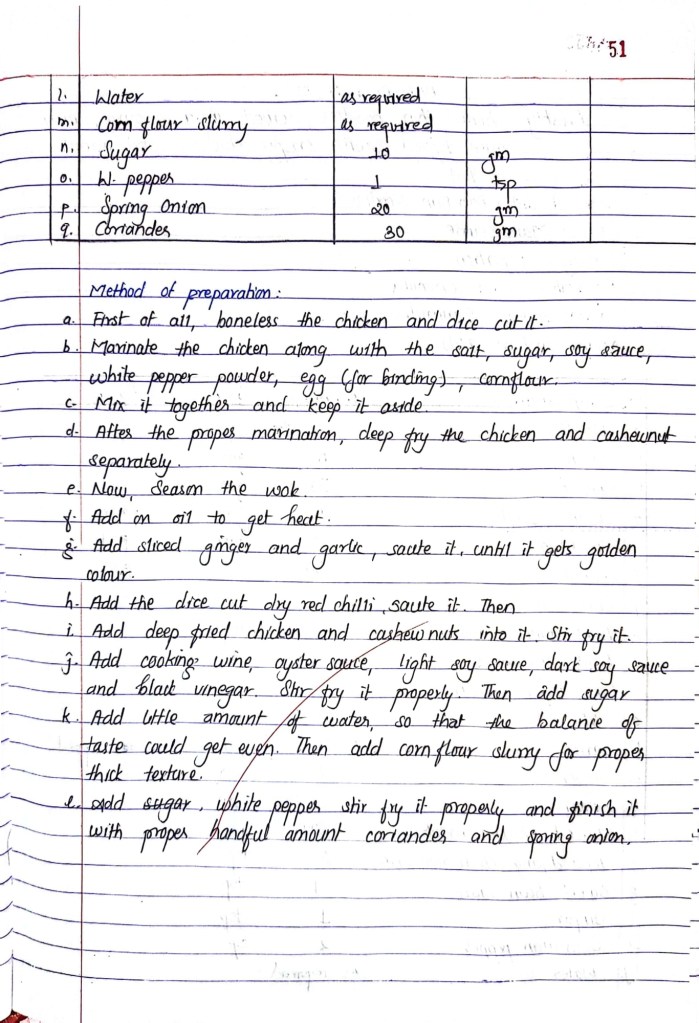 51
l. Water as required
m. Corn flour slurry as required
n. Sugar 10 gm
o. W. pepper 1 tsp
p. Spring Onion 20 gm
q. Coriander 30 gm
Method of preparation:
a. First of all, boneless the chicken and dice cut it.
b. Marinate the chicken along with the salt, sugar, soy sauce,
white pepper powder, egg (for binding), cornflour.
c- Mix it together and keep it aside.
d- After the proper marination, deep fry the chicken and cashewnut
separately.
e. Now, Season the wok.
f. Add on oil to get heat.
g. Add sliced ginger and garlic, saute it, until it gets golden
colour.
h. Add the dice cut dry red chilli, saute it. Then
i. Add deep fried chicken and cashew nuts into it. Stir fry it.
j. Add cooking wine, oyster sauce, light soy sauce, dark soy sauce
and black vinegar. Stir fry it properly. Then add sugar
k. Add little amount of water, so that the balance of
taste could get even. Then add corn flour slurry for proper
thick texture.
l. Add sugar, white pepper stir fry it properly and finish it
with proper handful amount coriander and spring onion.